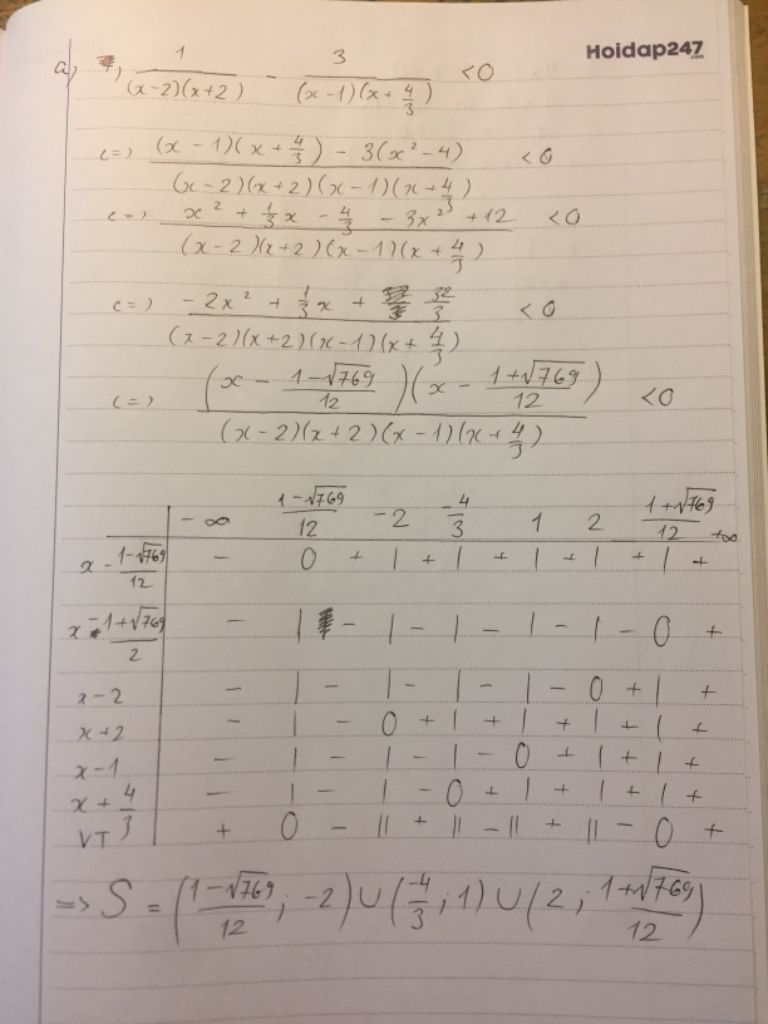 Hoidap247.com
a, 1/((x-2)(x+2)) - 3/((x-1)(x+4/3)) <0
<=> ((x-1)(x+4/3) - 3(x²-4))/((x-2)(x+2)(x-1)(x+4/3)) <0
<=> (x² + 1/3x - 4/3 - 3x² + 12)/((x-2)(x+2)(x-1)(x+4/3)) <0
<=> (-2x² + 1/3x + 32/3)/((x-2)(x+2)(x-1)(x+4/3)) <0
<=> ((x - (1-√769)/12)(x - (1+√769)/12))/((x-2)(x+2)(x-1)(x+4/3)) <0
-∞ (1-√769)/12 -2 -4/3 1 2 (1+√769)/12 +∞
x - (1-√769)/12 - 0 + | + | + | + | + | +
x - (1+√769)/2 - | - | - | - | - | - 0 +
x-2 - | - | - | - | - 0 + | +
x+2 - | - 0 + | + | + | + | +
x-1 - | - | - | - 0 + | + | +
x + 4/3 - | - | - 0 + | + | + | +
VT + 0 - || + || - || + || - 0 +
=> S = ((1-√769)/12 ; -2) ∪ (-4/3 ; 1) ∪ (2 ; (1+√769)/12)